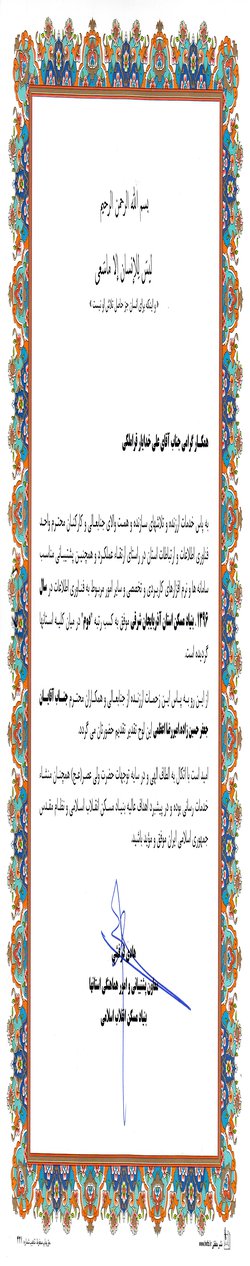 بسم الله الرحمن الرحیم
لیس للإنسان إلا ما سعی
« و اینکه برای انسان جز حاصل تلاش او نیست »
همکار گرامی جناب آقای علی خدایار قراملکی
به پاس خدمات ارزنده و تلاشهای سازنده و همت والای جنابعالی و کارکنان محترم واحد
فناوری اطلاعات و ارتباطات استان در راستای ارتقاء عملکرد و همچنین پشتیبانی مناسب
سامانه ها و نرم افزارهای کاربردی و تخصصی و سایر امور مربوط به فناوری اطلاعات در سال
۱۳۹۶ ، بنیاد مسکن استان آذربایجان شرقی موفق به کسب رتبه "دوم" در میان کلیه استانها
گردیده است.
از این رو به پاس این زحمات ارزنده از جنابعالی و همکاران محترم جناب آقایان
جعفر حسین زاده امیررضا اعظمی این لوح تقدیر تقدیم حضورتان می گردد.
امید است با اتکال به الطاف الهی و در سایه توجهات حضرت ولی عصر(عج) همچنان منشاء
خدمات رسانی بوده و در پیشبرد اهداف عالیه بنیاد مسکن انقلاب اسلامی و نظام مقدس
جمهوری اسلامی ایران موفق و موید باشید.
معاون پشتیبانی و امور هماهنگی استانها
بنیاد مسکن انقلاب اسلامی